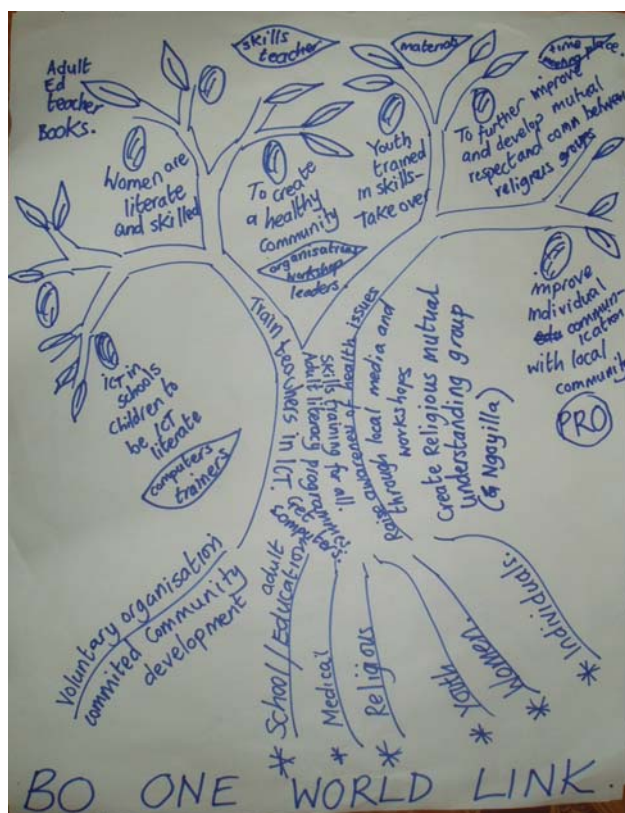 Adult
Ed
teacher
Books.
skills
teacher
materials
time
meeting place.
Women are
literate
and skilled
To create
a healthy
community
organisations
workshop
leaders.
Youth
trained
in skills-
take over
To further improve
and develop mutual
respect and comm between
religious groups
improve
individual
commun-
ication
with local
community
PRO
ICT in
schools
children to
be ICT
literate
computers
trainers
Train teachers in ICT.
Get
computers.
Adult literacy programmes.
skills training for all.
Raise awareness of health issues
through local media and
workshops
Create Religious mutual
understanding group
(& Ngayilla)
Voluntary organisation
commited community
development
* School/Education adult
* Medical
* Religious
* Youth
* Women.
* Individuals.
BO ONE WORLD LINK.